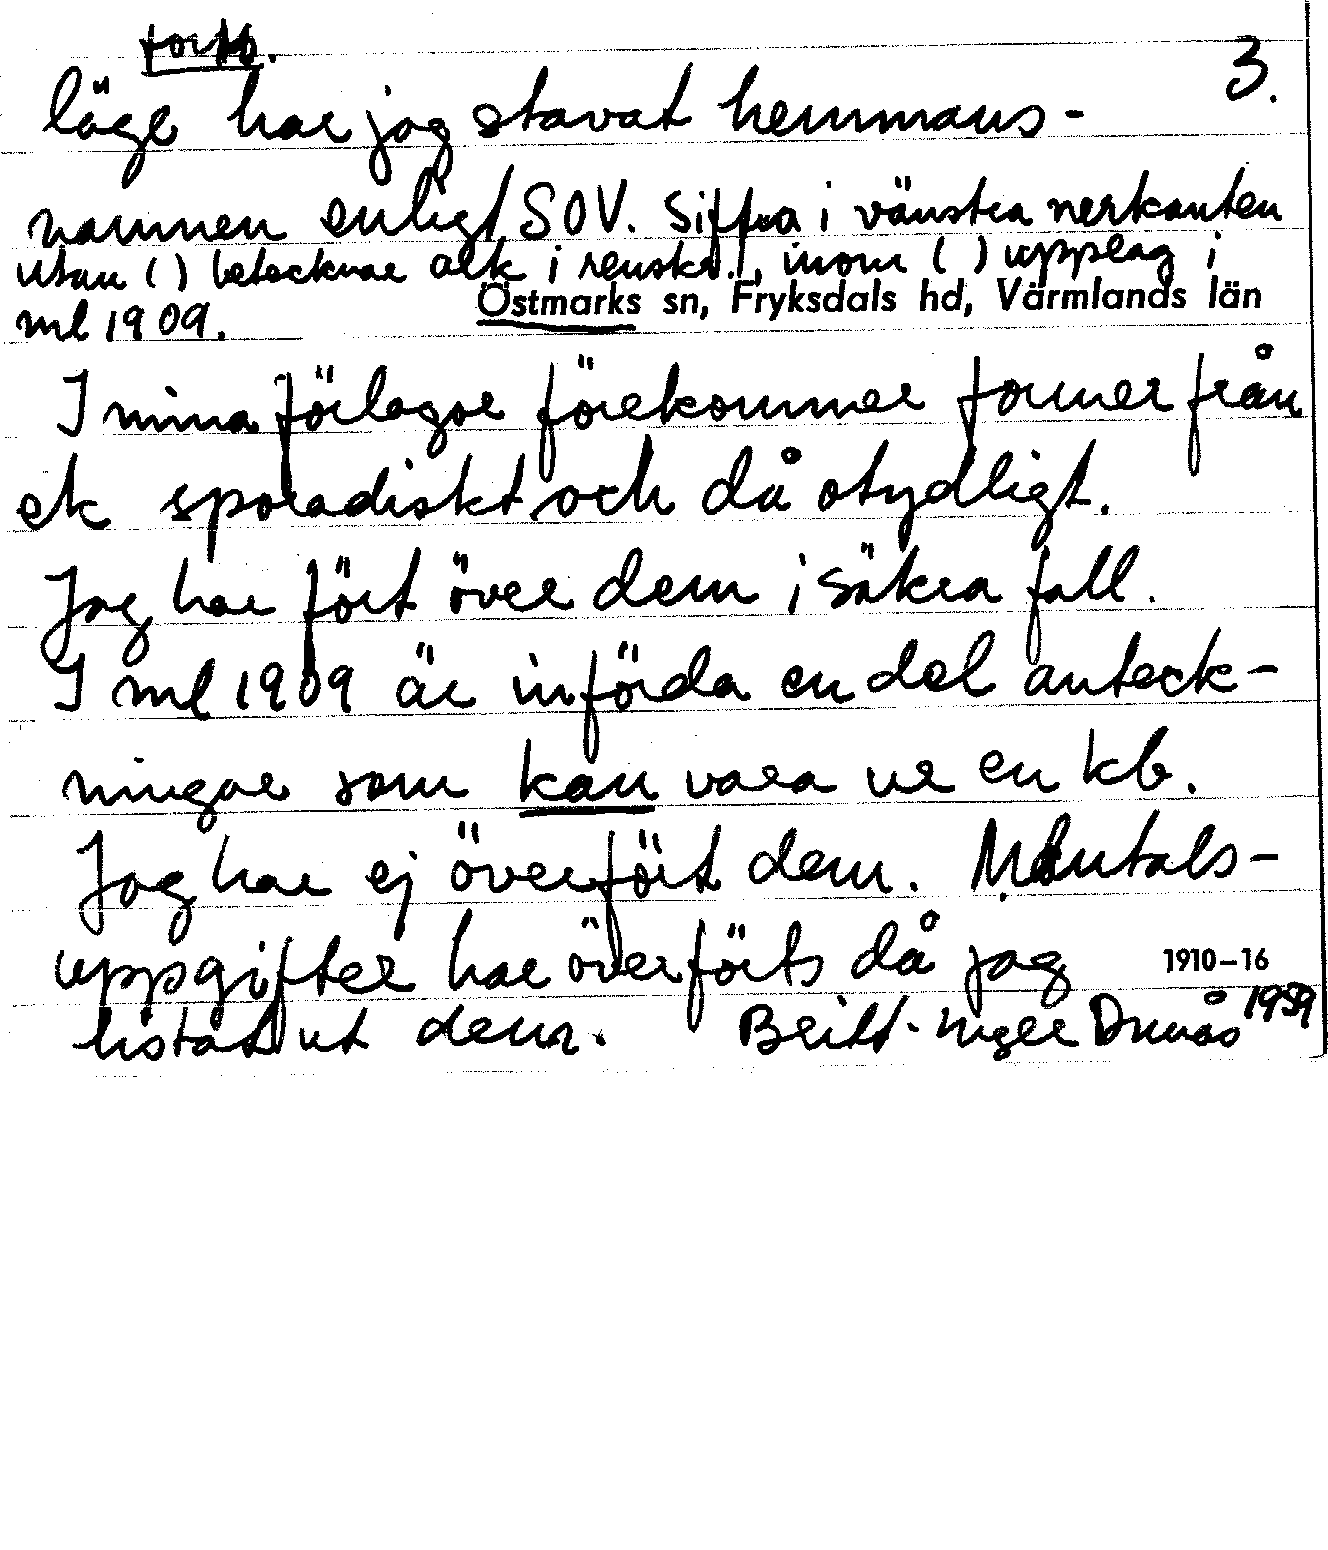 forts. 3.
läge har jag stavat hemmans-
namnen enligt SOV. Siffra i vänstra nerkanten
utan ( ) betecknar ark i renskr., inom ( ) uppslag i
ml 1909. Östmarks sn, Fryksdals hd, Värmlands län
I mina förlagor förekommer former från
ek sporadiskt och då otydligt.
Jag har fört över dem i säkra fall.
I ml 1909 är införda en del anteck-
ningar som kan vara ur en kb.
Jag har ej överfört dem. Mantals-
uppgifter har överförts då jag 1910-16
listat ut dem. Britt-Inger 1989